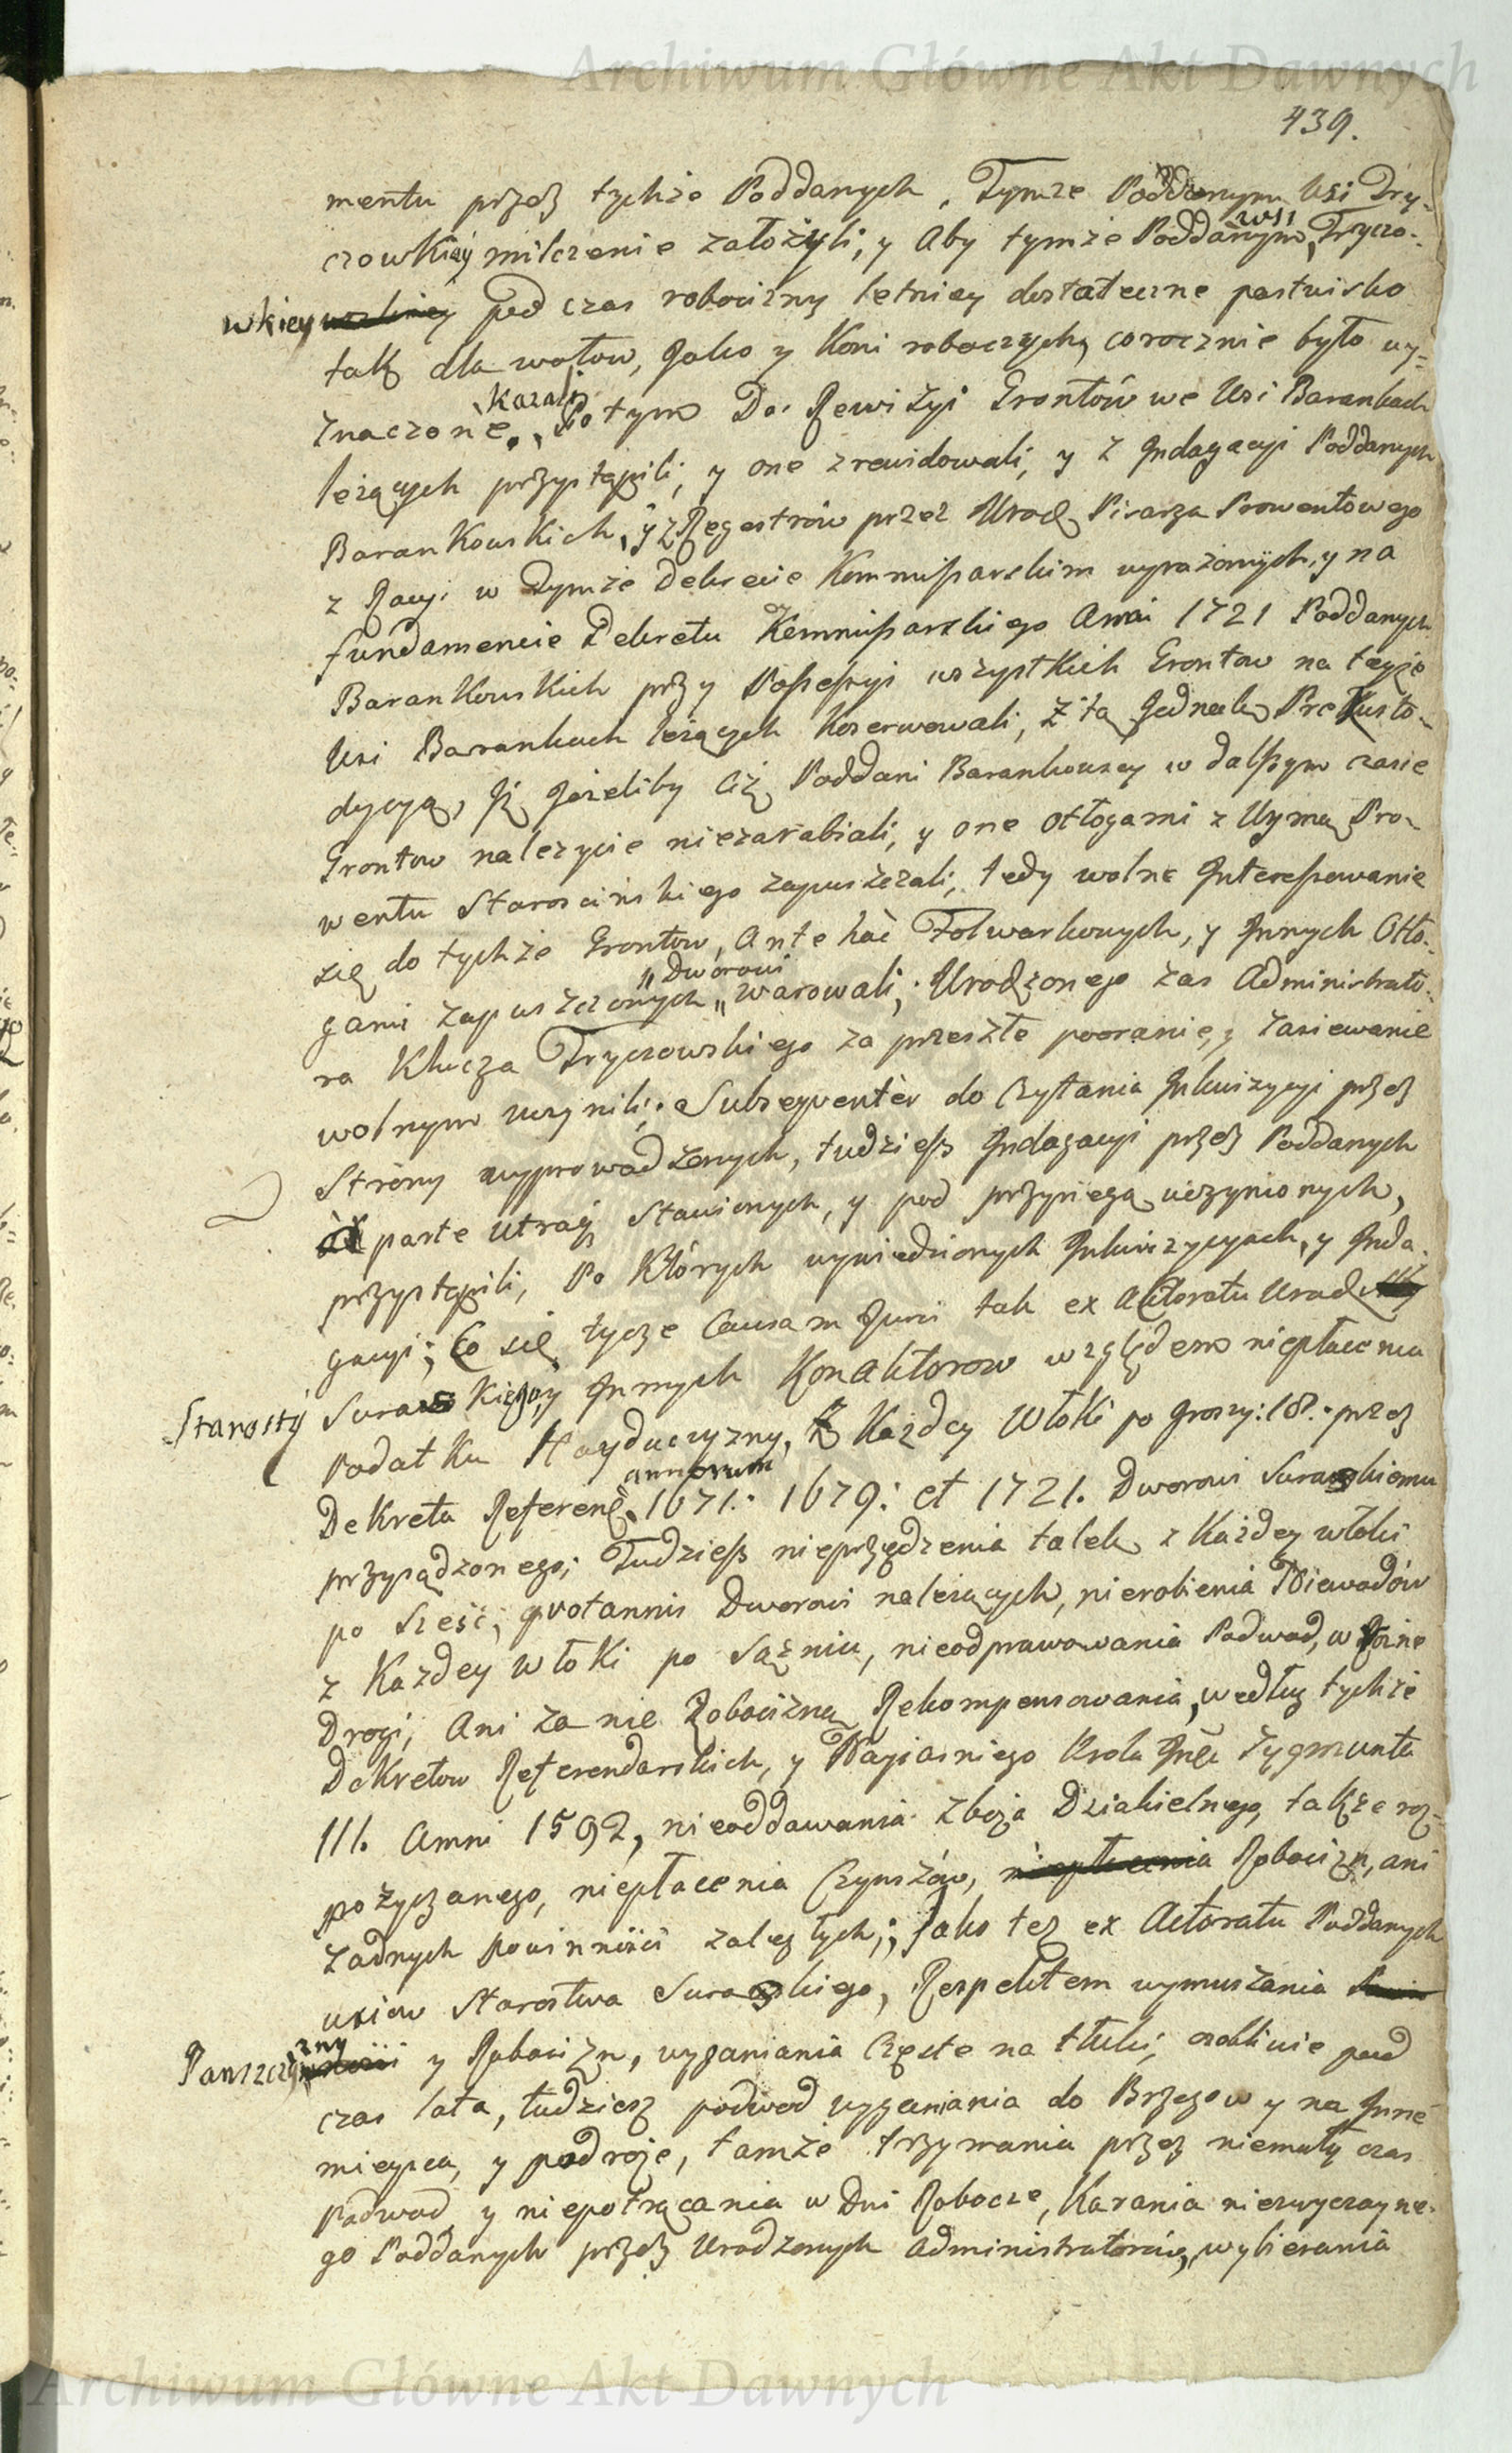 Archiwum Główne Akt Dawnych
439.
mentu przez tychże Poddanych, Tymze Poddanym Wsi Try-
czowkiey milczenie założyli, y Aby tymże Poddanym wsi Tryczo-
wkiey pod czas robocizny letniey dostateczne pastwisko
tak dla wołow, Jako y Koni roboczych, corocznie było wy-
znaczone. Kazali, Po tym Do Rewizyi Grontów we Wsi Barankach
leżących przystąpili, y one zrewidowali, y z Indagacyi Poddanych
Barankowskich, y z Regestrów przez Urodz. Pisarza Prowentowego
z Racyi w Tymże Dekrecie Kommissarskim wyrażonych, y na
fundamencie Dekretu Kommissarskiego Anni 1721 Poddanych
Barankowskich przy Possessyi wszystkich Grontow na teyże
Wsi Barankach leżących konserwowali, z tą Jednak Prekusto-
dycyą, Iż Jeżeliby Ciż Poddani Barankowscy w dalszym czasie
Grontow należycie niezarabiali, y one odłogami z Uymą Pro-
wentu Staroscińskiego zapuszczali, tedy wolne Interessowanie
się do tychże Grontow, Ante hac Folwarkowych, y Innych Odło-
gami zapuszczonych „Dworowi„ warowali; Urodzonego zas Administrato-
ra Klucza Tryczowskiego za przeszłe pooranie, y zasiewanie
wolnym uczynili; Subsequentèr do Czytania Inkwizycyi przez
Strony wyprowadzonych, tudziesz Indagacyi przez Poddanych
ex parte utraq. Stawionych, y pod przysięgą uczynionych,
przystąpili, Po Których wywiedzionych Inkwizycyach, y Inda-
gacyi; Co się tycze Causam Juris tak ex Actoratu Urodz.
Starosty Suraskiego, y Innych Konaktorow względem niepłacenia
Podatku Hayduczyzny, z Każdey Włoki po groszy: 18. przez
Dekreta Referend. annorum 1671. 1679: et 1721. Dworowi Suraskiemu
przysądzonego; Tudziesz nieprzędzenia talek z Każdey włoki
po sześć, quotannis Dworowi należących, nierobienia Niewodów
z Kazdey włoki po Sążniu, nieodprawowania Podwod, w Rożne
Drogi, Ani za nie Robocizną Rekompensowania, według tychże
Dekretow Referendarskich, y Nayiasniego Krola Jmci Zygmunta
III. Anni 1592, nieoddawania zboża Dziakielnego, także roz-
pożyczanego, niepłacenia Czynszów, Robocizn, ani
żadnych powinności zaległych; Jako tez ex Actoratu Poddanych
wsiow Starostwa Suraskiego, Respektem wymuszania
Panszczyzny y Robocizn, wyganiania Częste na tłuki, osobliwie pod
czas lata, tudziesz podwod wyganiania do Brzegow y na Inne
mieysca, y podroże, tamże trzymania przez niemały czas
Podwod, y niepotrącania w Dni Robocze, Karania niezwyczayne-
go Poddanych przez Urodzonych Administratorów, wybierania
Archiwum Główne Akt Dawnych